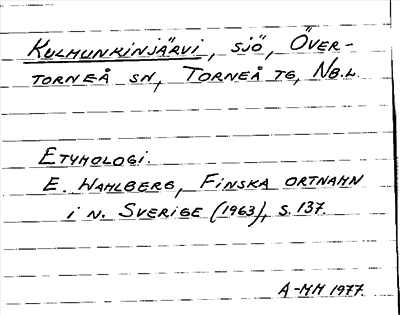 KULMUNKINJÄRVI, SJÖ, ÖVER-
TORNEÅ SN, TORNEÅ TG, NB.L.
ETYMOLOGI.
E. WAHLBERG, FINSKA ORTNAMN
I N. SVERIGE (1963), S. 137.
A-MM 1977.